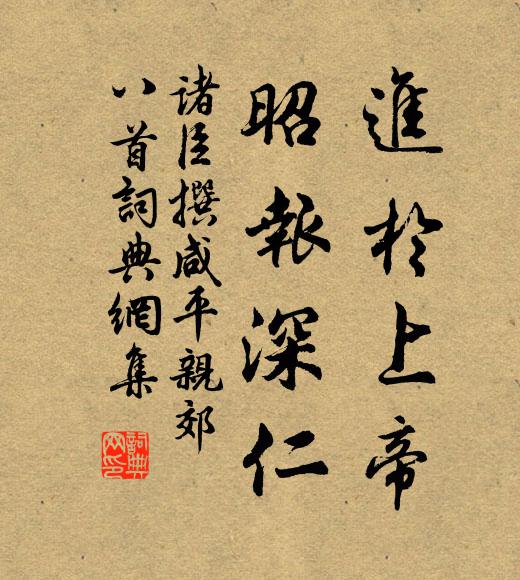 進於上帝
昭報深仁
諸臣撰咸平親郊
八首詞典網集
詞典網印